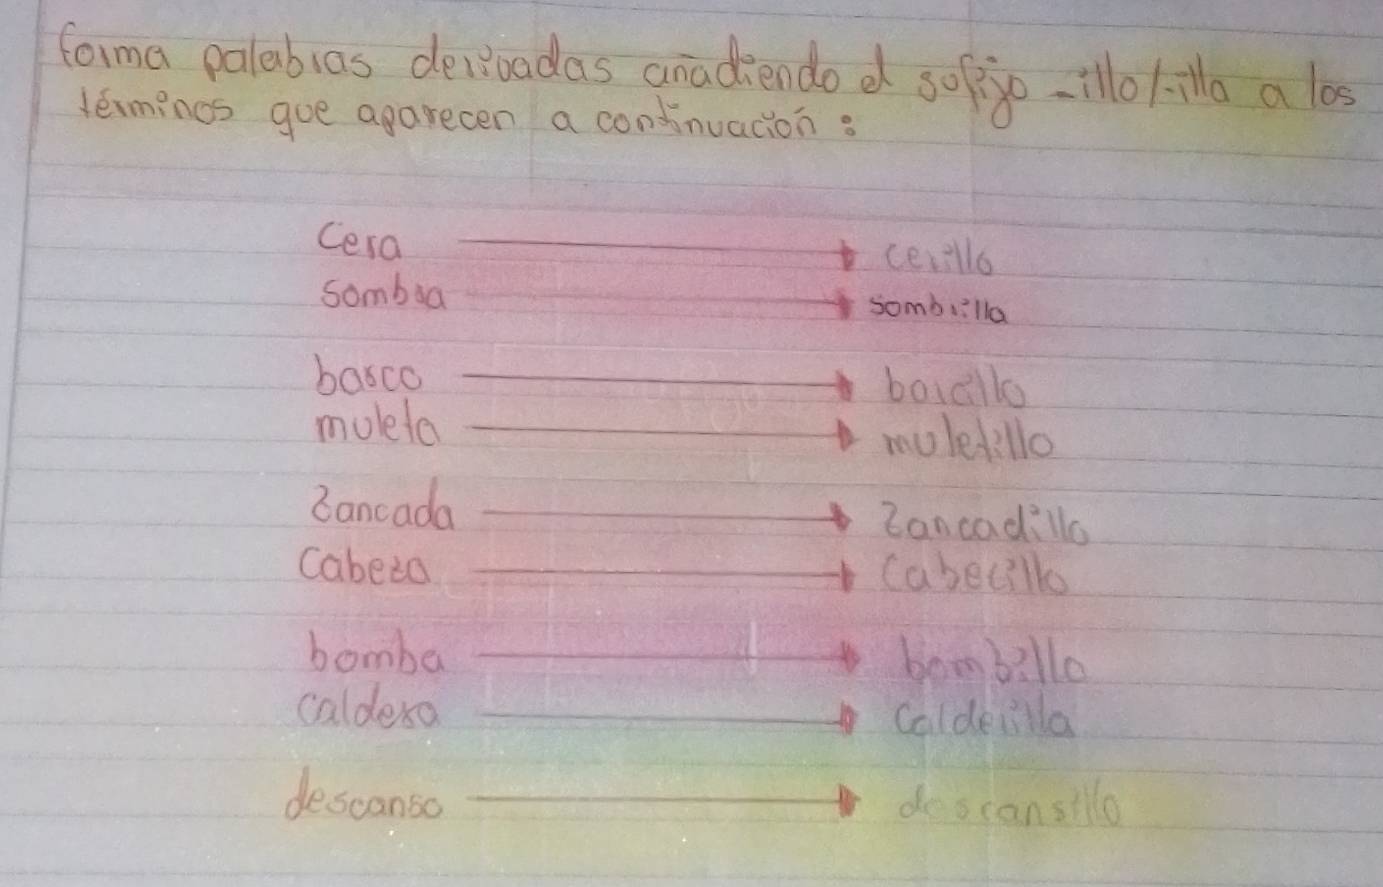 forma palabras derivadas añadiendo el sufijo -illo/-illa a los
términos que aparecen a continuación:
Cera → cerilla
Sombra → sombrilla
barco → barcillo
muleta → muletillo
Zancada → Zancadilla
Cabeza → Cabecilla
bomba → bombillo
Caldera → Calderilla
descanso → descansillo